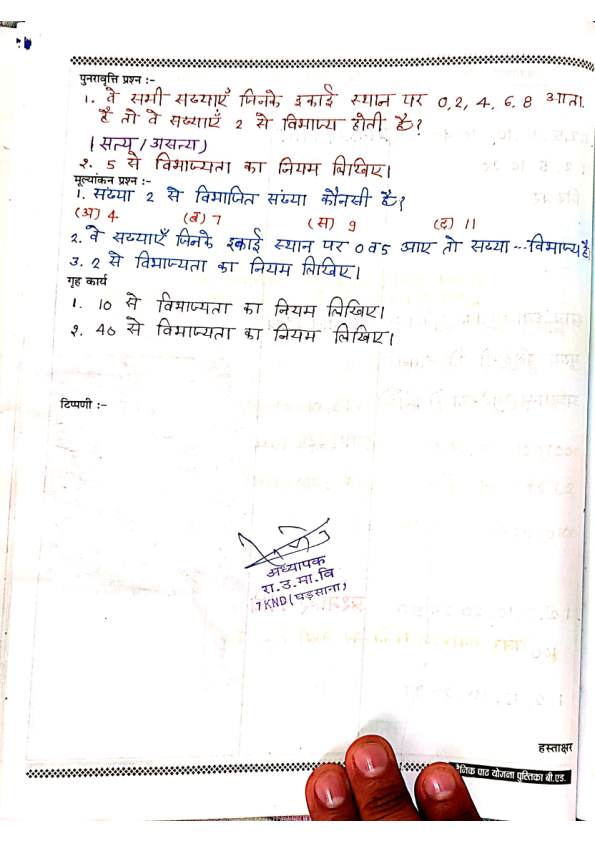 पुनरावृत्ति प्रश्न :-
1. वे सभी सख्याएँ जिनके इकाई स्थान पर 0, 2, 4, 6, 8 आता
है तो वे सख्याएँ 2 से विभाज्य होती है?
(सत्य / असत्य)
2. 5 से विभाज्यता का नियम लिखिए।
मूल्यांकन प्रश्न :-
1. संख्या 2 से विभाजित संख्या कौनसी है?
(अ) 4 (ब) 7 (स) 9 (द) 11
2. वे सख्याएँ जिनके इकाई स्थान पर 0 व 5 आए तो सख्या --- विभाज्य है
3. 2 से विभाज्यता का नियम लिखिए।
गृह कार्य
1. 10 से विभाज्यता का नियम लिखिए।
2. 40 से विभाज्यता का नियम लिखिए।
टिप्पणी :-
अध्यापक
रा.उ.मा.वि
7 KND (घड़साना)
हस्ताक्षर
दैनिक पाठ योजना पुस्तिका बी.एड.